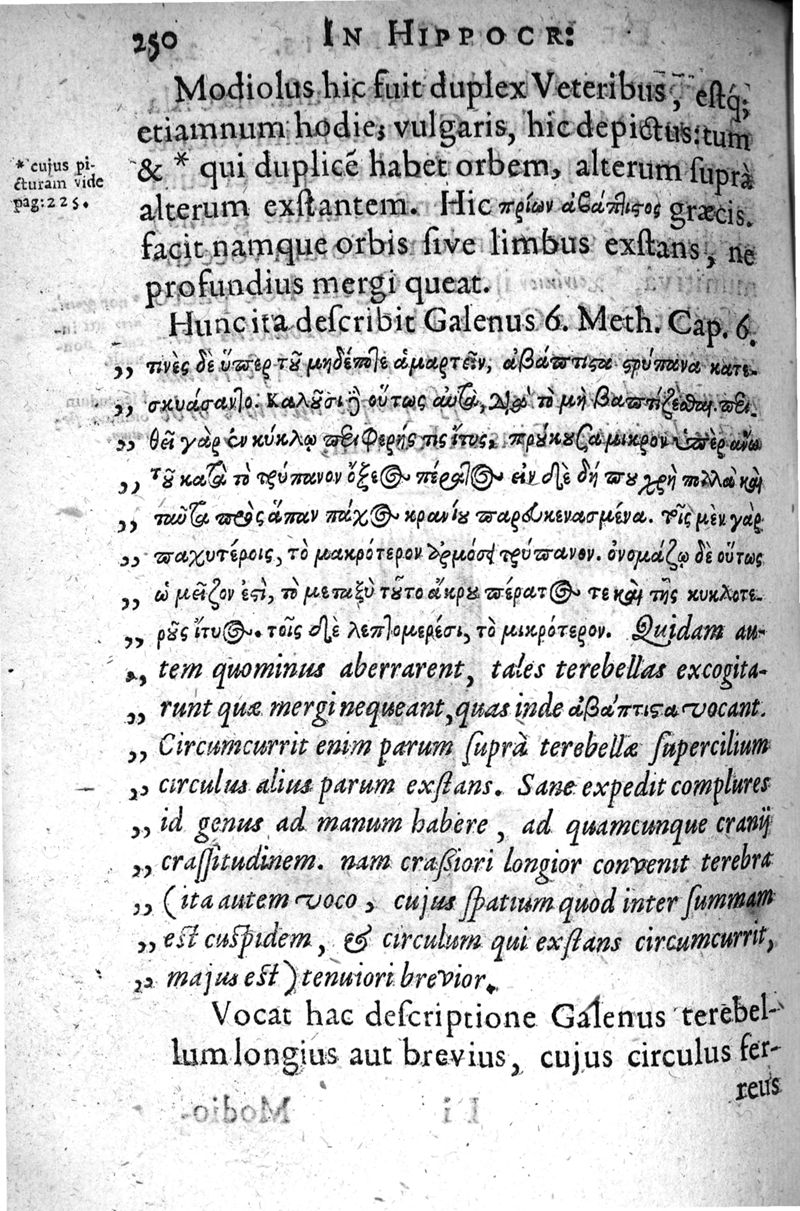 250 IN HIPPOCR:
Modiolus hic fuit duplex Veteribus, estq́;
etiamnum hodie; vulgaris, hic depictus: tum
& * qui duplicē habet orbem, alterum suprà
* cujus pi-
cturam vide
pag: 225.
alterum exstantem. Hic πρίων ἀβάπτιστος græcis.
facit namque orbis sive limbus exstans, ne
profundius mergi queat.
Hunc ita describit Galenus 6. Meth. Cap. 6.
,, τινὲς δὲ ὕπερ τοῦ μηδέποτε ἁμαρτεῖν, ἀβάπτιστα τρύπανα κατε-
,, σκυάσαντο. καλοῦσι δὲ οὕτως αὐτὰ, διὰ τὸ μὴ βαπτίζεσθαι. περι-
,, θεῖ γὰρ ἐν κύκλῳ περιφερής τις ἴτυς, προύκουσα μικρὸν ὑπὲρ ἄνω
,, τοῦ κατὰ τὸ τρύπανον ὀξέος πέρατος. εἰν δὲ δή που χρὴ πολλὰ καὶ
,, ταῦτα πρὸς ἅπαν πάχος κρανίου παρασκενασμένα. τοῖς μὲν γὰρ
,, παχυτέροις, τὸ μακρότερον ἁρμόσει τρύπανον. ὀνομάζω δὲ οὕτως
,, ὡ μεῖζον ἐστὶ, τὸ μεταξὺ τοῦτο ἄκρου πέρατος τε καὶ τῆς κυκλοτε-
,, ροῦς ἴτυος. τοῖς δὲ λεπτομερέσι, τὸ μικρότερον. Quidam au-
,, tem quominus aberrarent, tales terebellas excogita-
,, runt quæ mergi nequeant, quas inde ἀβάπτιστα vocant.
,, Circumcurrit enim parum suprà terebellæ supercilium
,, circulus alius parum exstans. Sane expedit complures
,, id genus ad manum habere, ad quamcunque cranij
,, crassitudinem. nam crassiori longior convenit terebra
,, (ita autem voco, cujus spatium quod inter summam
,, est cuspidem, & circulum qui exstans circumcurrit,
,, majus est) tenuiori brevior.
Vocat hac descriptione Galenus terebel-
lum longius aut brevius, cujus circulus fer-
reus